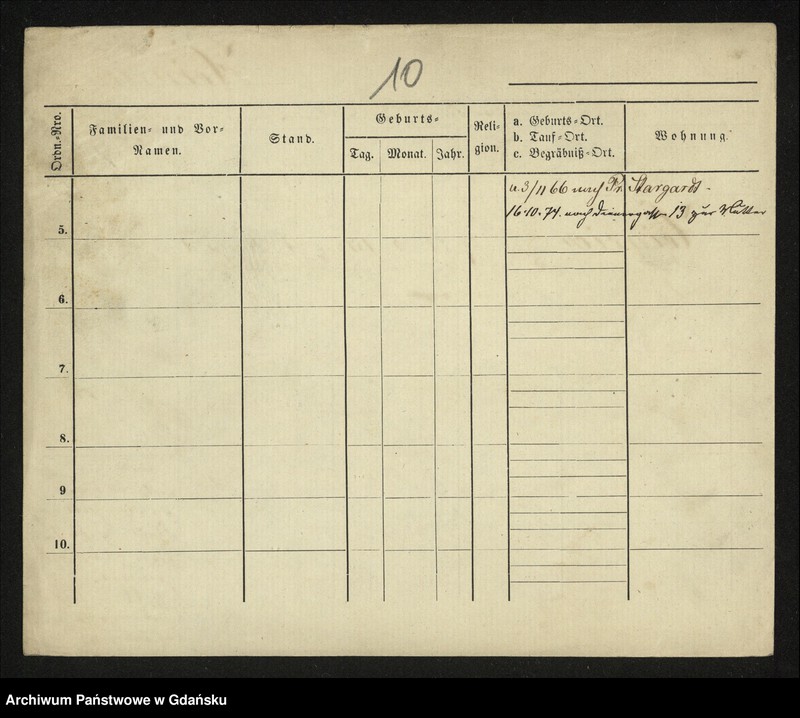 10
Ordn.=Nro.
Familien= und Vor=
Namen.
Stand.
Geburts=
Tag.
Monat.
Jahr.
Reli=
gion.
a. Geburts=Ort.
b. Tauf=Ort.
c. Begräbniß=Ort.
Wohnung.
3/11 66 nach Pr. Stargardt -
16.10.74. nach Dienergasse 13 zur Mutter
5.
6.
7.
8.
9
10.
Archiwum Państwowe w Gdańsku